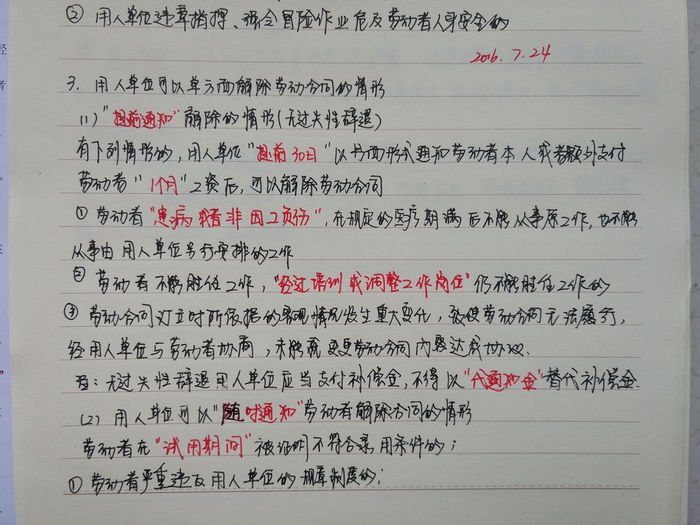 ② 用人单位违章指挥、强令冒险作业危及劳动者人身安全的
2016.7.24
3. 用人单位可以单方面解除劳动合同的情形
(1)“提前通知”解除的情形(无过失性辞退)
有下列情形的,用人单位“提前30日”以书面形式通知劳动者本人或者额外支付
劳动者“1个月”工资后,可以解除劳动合同
① 劳动者“患病或者非因工负伤”,在规定的医疗期满后不能从事原工作,也不能
从事由用人单位另行安排的工作
② 劳动者不能胜任工作,“经过培训或调整工作岗位”仍不能胜任工作的
③ 劳动合同订立时所依据的客观情况发生重大变化,致使劳动合同无法履行,
经用人单位与劳动者协商,未能就变更劳动合同内容达成协议.
注:无过失性辞退用人单位应当支付补偿金,不得以“代通知金”替代补偿金.
(2) 用人单位可以“随时通知”劳动者解除合同的情形
劳动者在“试用期间”被证明不符合录用条件的;
① 劳动者严重违反用人单位的规章制度的;